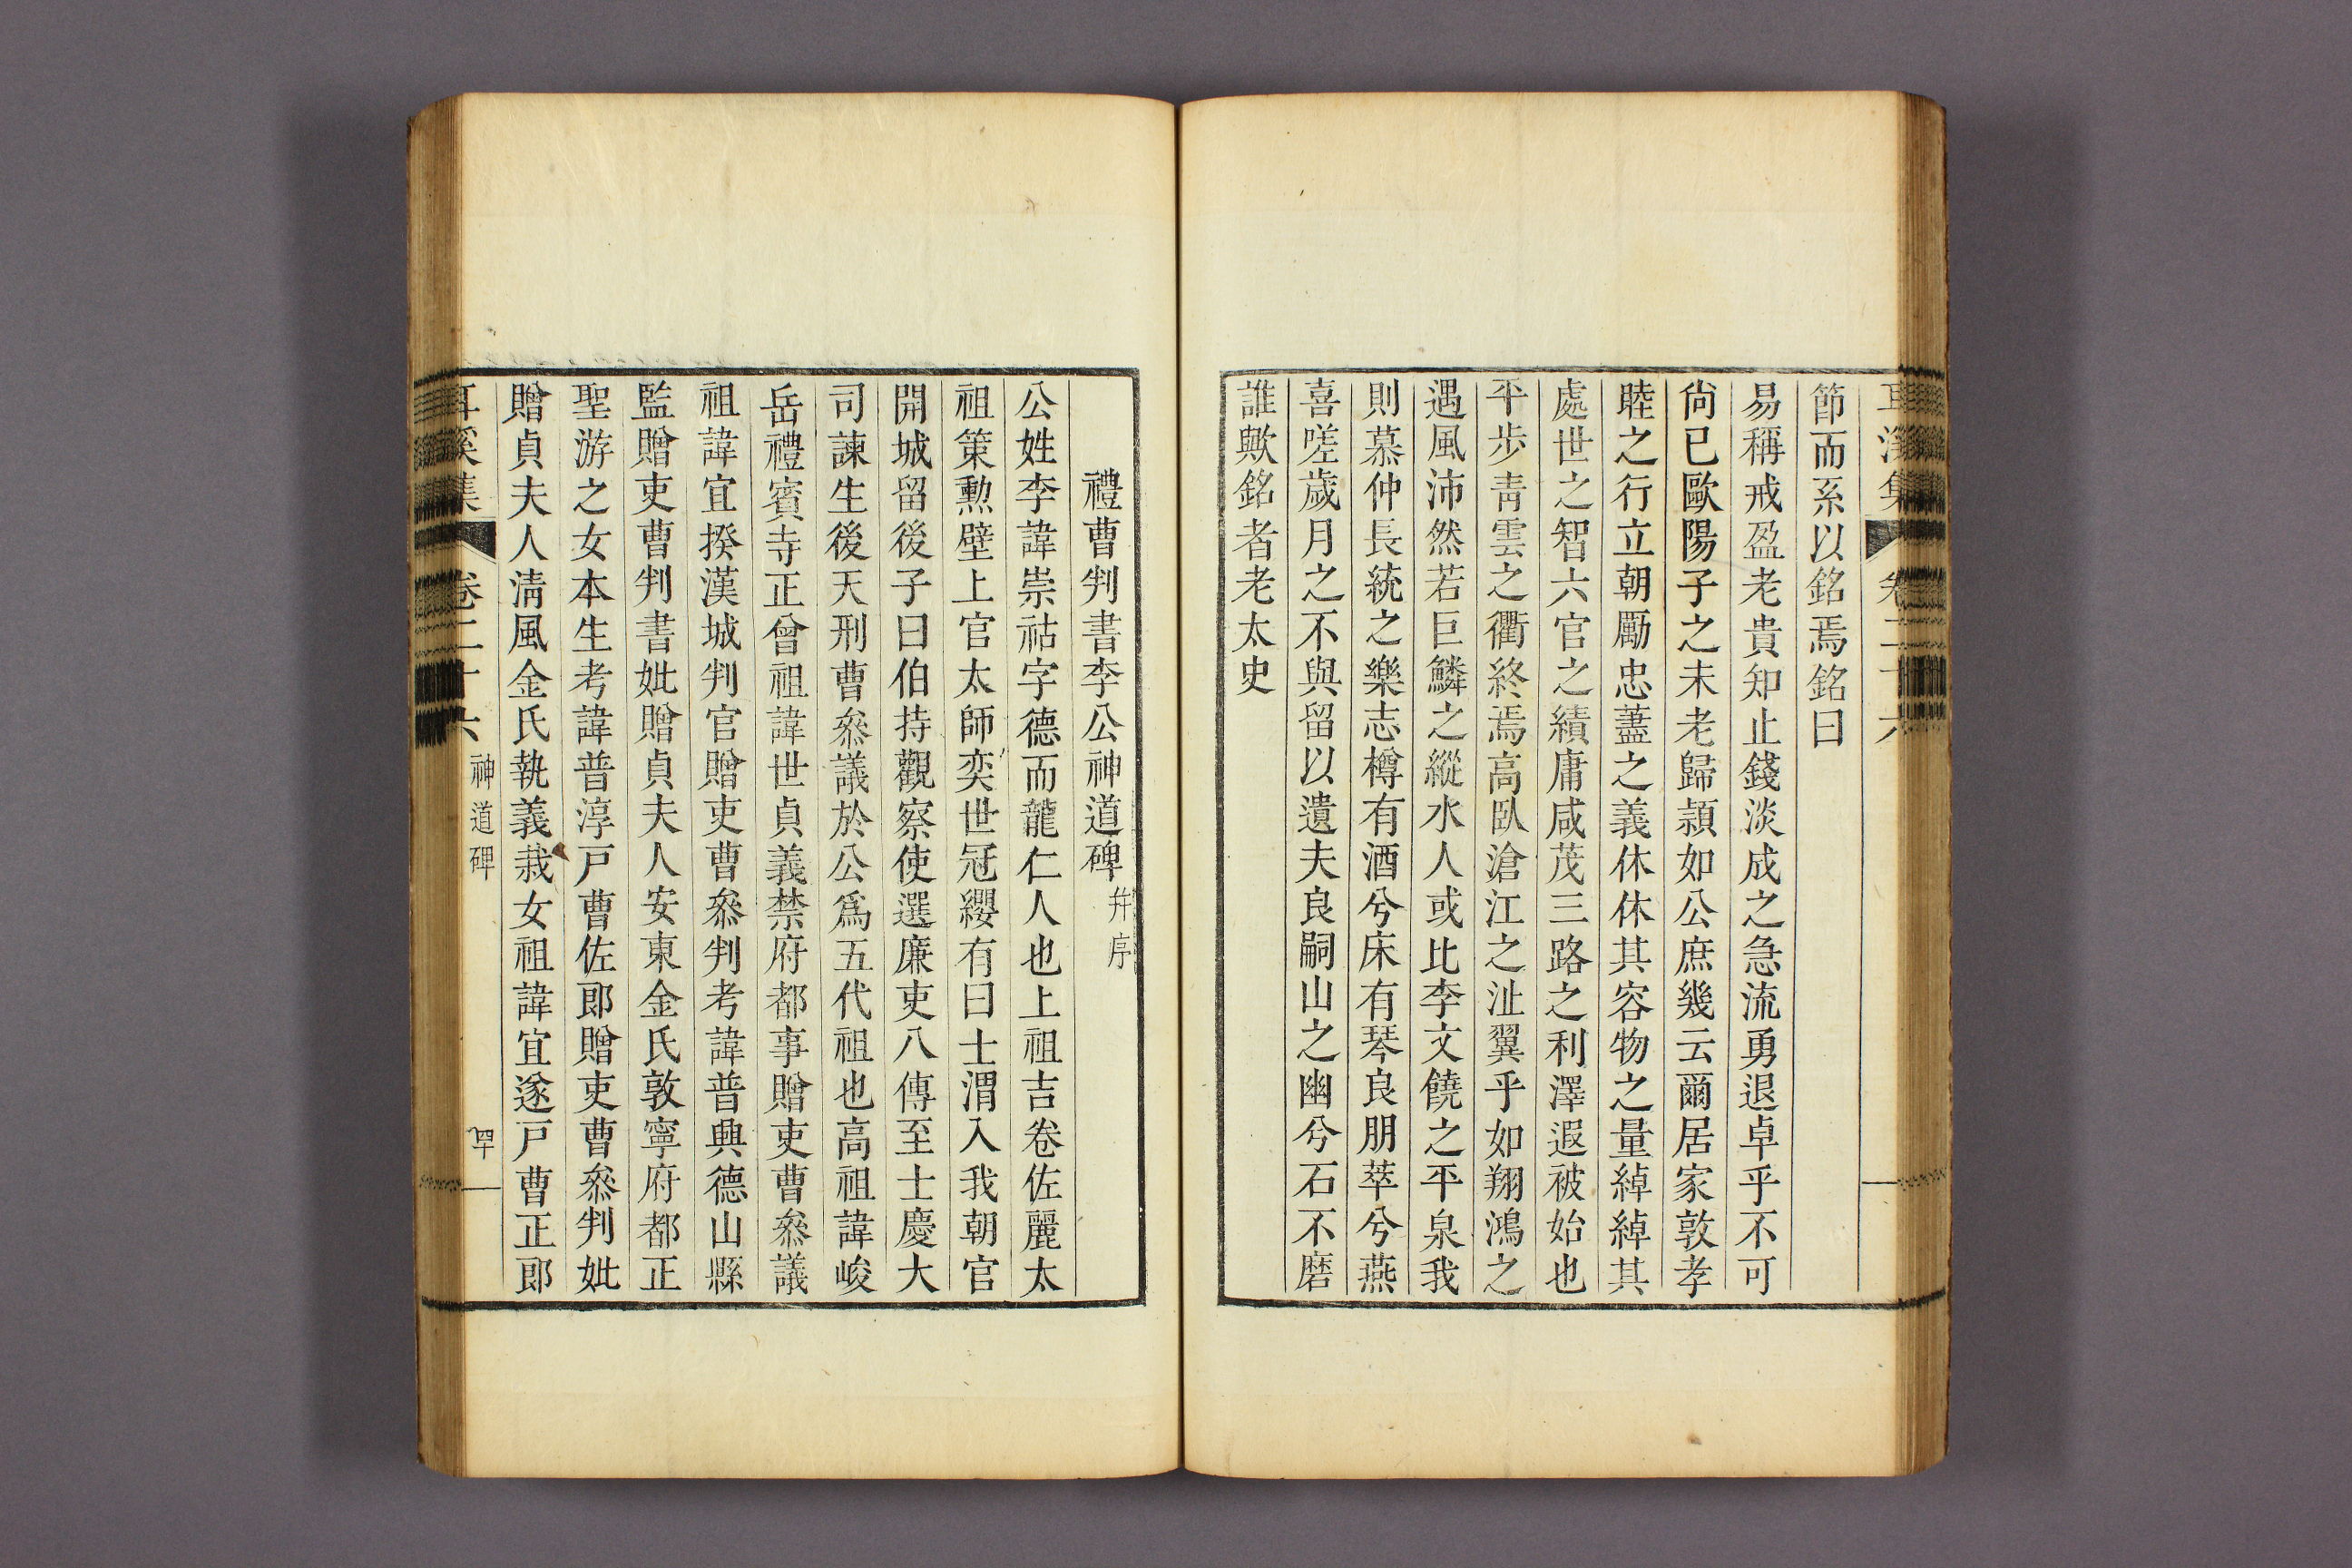 耳溪集 卷二十六
節而系以銘焉銘曰
易稱戒盈老貴知止錢淡成之急流勇退卓乎不可
尙已歐陽子之未老歸潁如公庶幾云爾居家敦孝
睦之行立朝勵忠藎之義休休其容物之量綽綽其
處世之智六官之績庸咸茂三路之利澤遐被始也
平步靑雲之衢終焉高臥滄江之沚翼乎如翔鴻之
遇風沛然若巨鱗之縱水人或比李文饒之平泉我
則慕仲長統之樂志樽有酒兮床有琴良朋萃兮燕
喜嗟歲月之不與留以遺夫良嗣山之幽兮石不磨
誰歟銘者老太史
禮曹判書李公神道碑 幷序
公姓李諱崇祜字德而龍仁人也上祖吉卷佐麗太
祖策勳壁上官太師奕世冠纓有曰士渭入我朝官
開城留後子曰伯持觀察使選廉吏八傳至士慶大
司諫生後天刑曹叅議於公爲五代祖也高祖諱峻
岳禮賓寺正曾祖諱世貞義禁府都事贈吏曹叅議
祖諱宜揆漢城判官贈吏曹叅判考諱普興德山縣
監贈吏曹判書妣贈貞夫人安東金氏敦寧府都正
聖游之女本生考諱普淳戶曹佐郎贈吏曹叅判妣
贈貞夫人淸風金氏執義栽女祖諱宜遂戶曹正郎
耳溪集 卷二十六 神道碑 四十